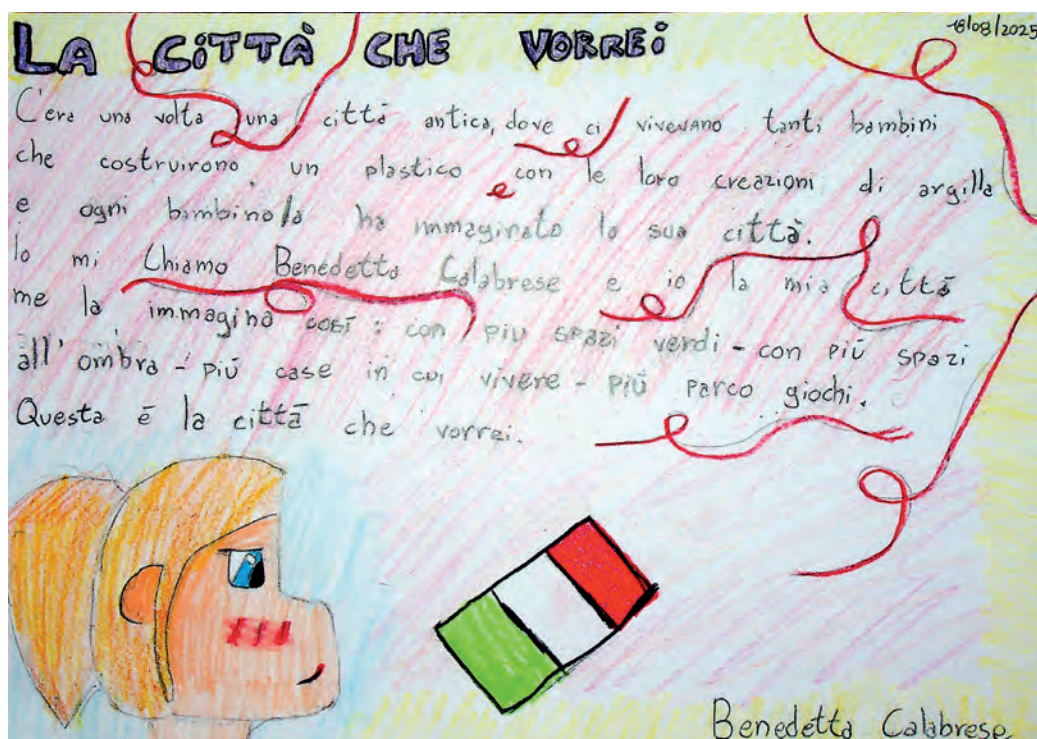 LA CiTTÀ CHE VORREi
18/08/2025
C'era una volta una città antica, dove ci vivevano tanti bambini
che costruirono un plastico con le loro creazioni di argilla
e ogni bambino/a ha immaginato la sua città.
Io mi Chiamo Benedetta Calabrese e io la mia città
me la immagino così: con più spazi verdi - con più spazi
all'ombra - più case in cui vivere - più parco giochi.
Questa è la città che vorrei.
Benedetta Calabrese